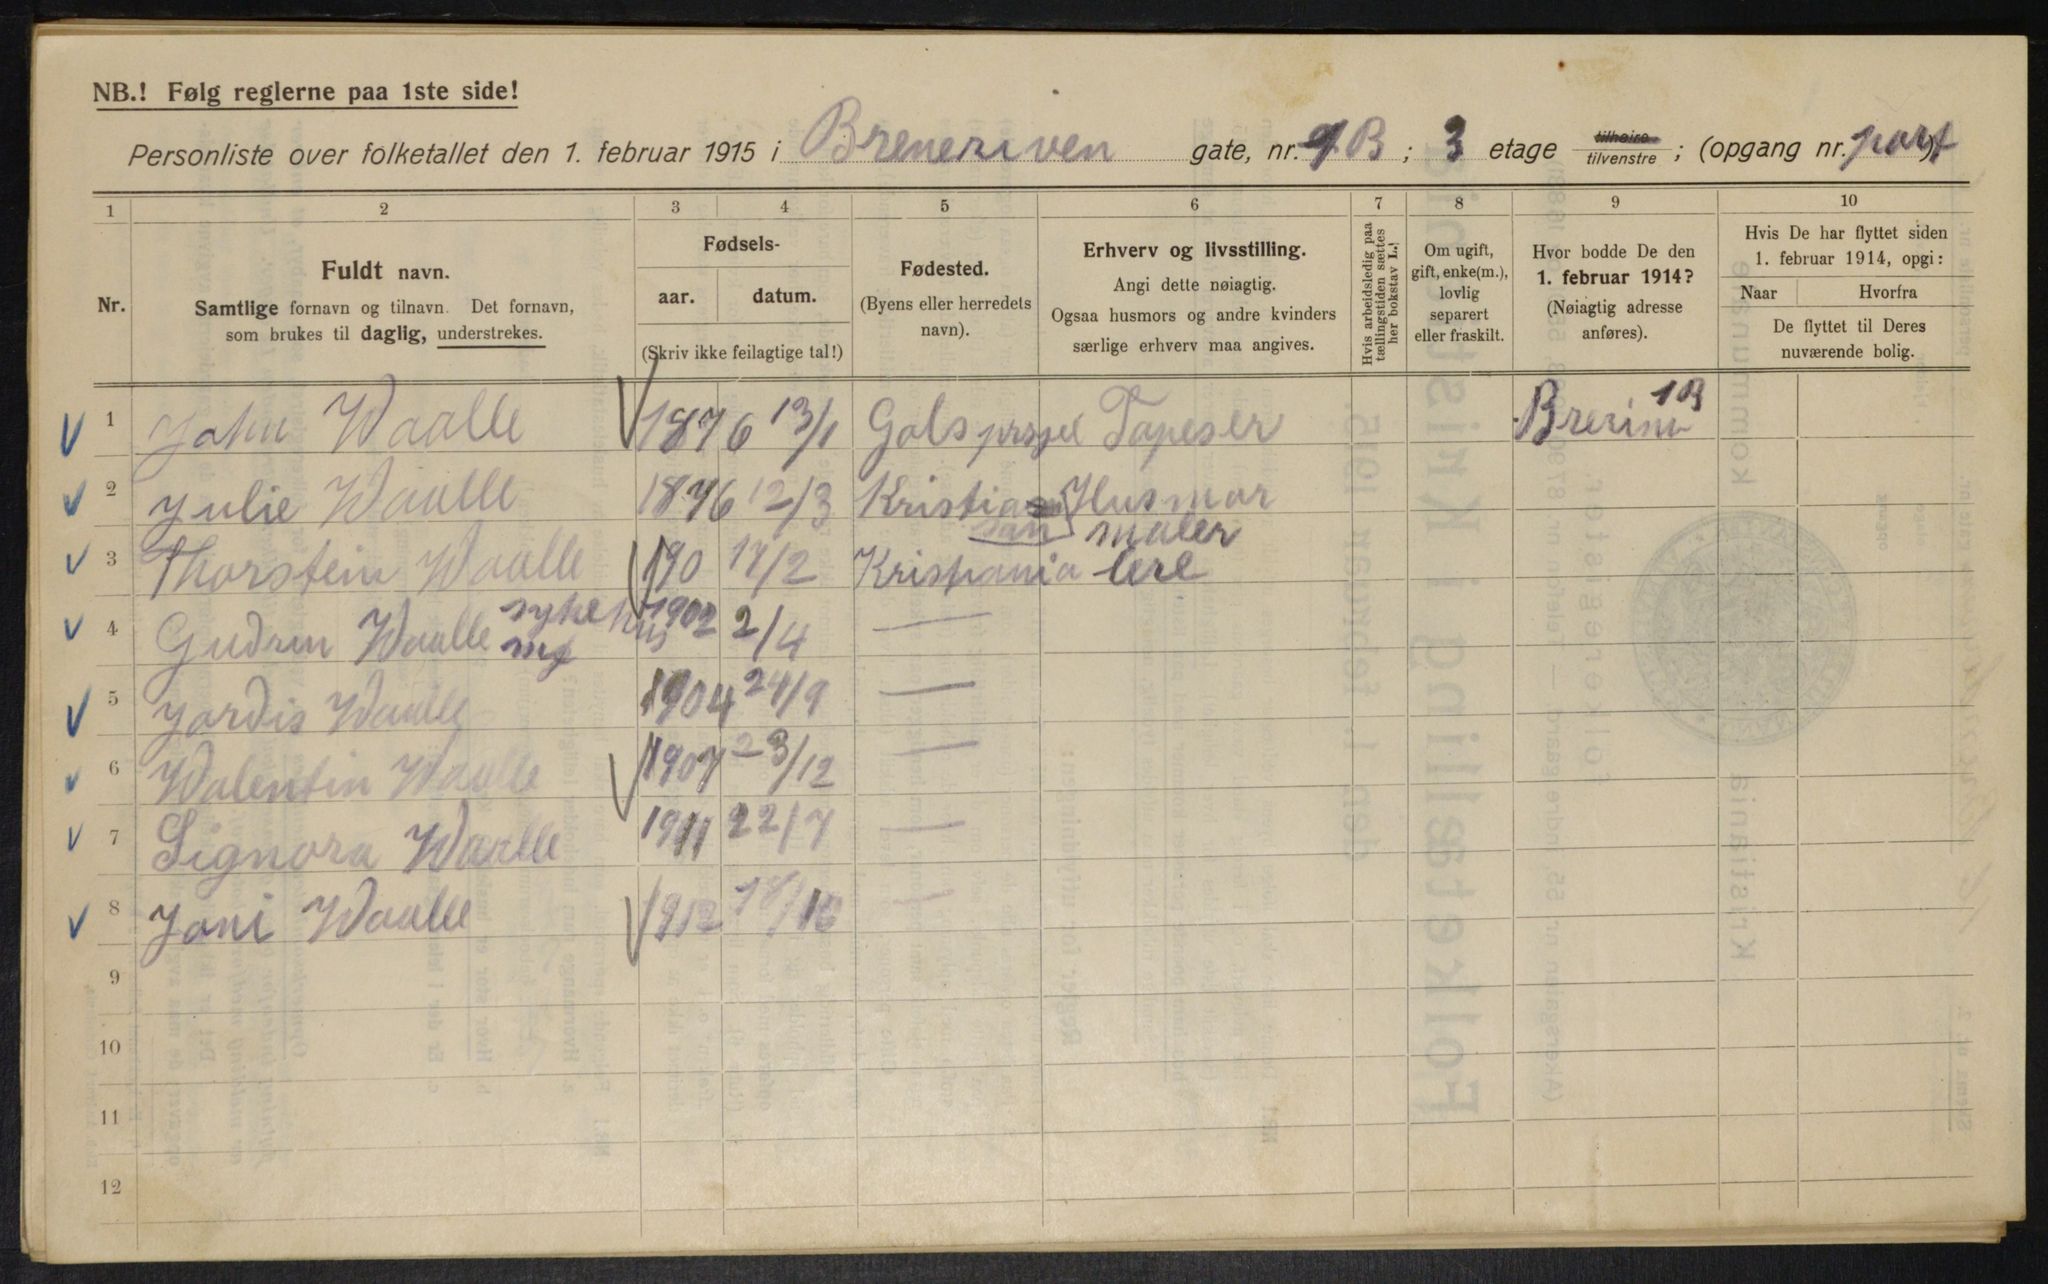 NB.! Følg reglerne paa 1ste side!
Personliste over folketallet den 1. februar 1915 i Breneriven gate, nr. 1B; 3 etage tilhøire tilvenstre; (opgang nr. port)
1 2 3 4 5 6 7 8 9 10
Nr.
Fuldt navn.
Samtlige fornavn og tilnavn. Det fornavn,
som brukes til daglig, understrekes.
Fødsels-
aar. datum.
(Skriv ikke feilagtige tal!)
Fødested.
(Byens eller herredets
navn).
Erhverv og livsstilling.
Angi dette nøiagtig.
Ogsaa husmors og andre kvinders
særlige erhverv maa angives.
Hvis arbeidsledig paa
tællingstiden sættes
her bokstav L.!
Om ugift,
gift, enke(m.),
lovlig
separert
eller fraskilt.
Hvor bodde De den
1. februar 1914?
(Nøiagtig adresse
anføres).
Hvis De har flyttet siden
1. februar 1914, opgi:
Naar Hvorfra
De flyttet til Deres
nuværende bolig.
1 John Waalle 1876 13/1 Gols Tapeser 1B
2 Julie Waalle 1876 12/3 Kristiansan Husmor
3 Thorstein Waalle 190 17/2 Krispania maler lere
4 Gudrun Waalle sykehus 1902 2/4 —
5 Jordis Waalle 1904 24/9 —
6 Walentin Waalle 1907 23/12 —
7 Signora Waalle 1911 22/7 —
8 Joni Waalle 1912 18/12 —
9
10
11
12